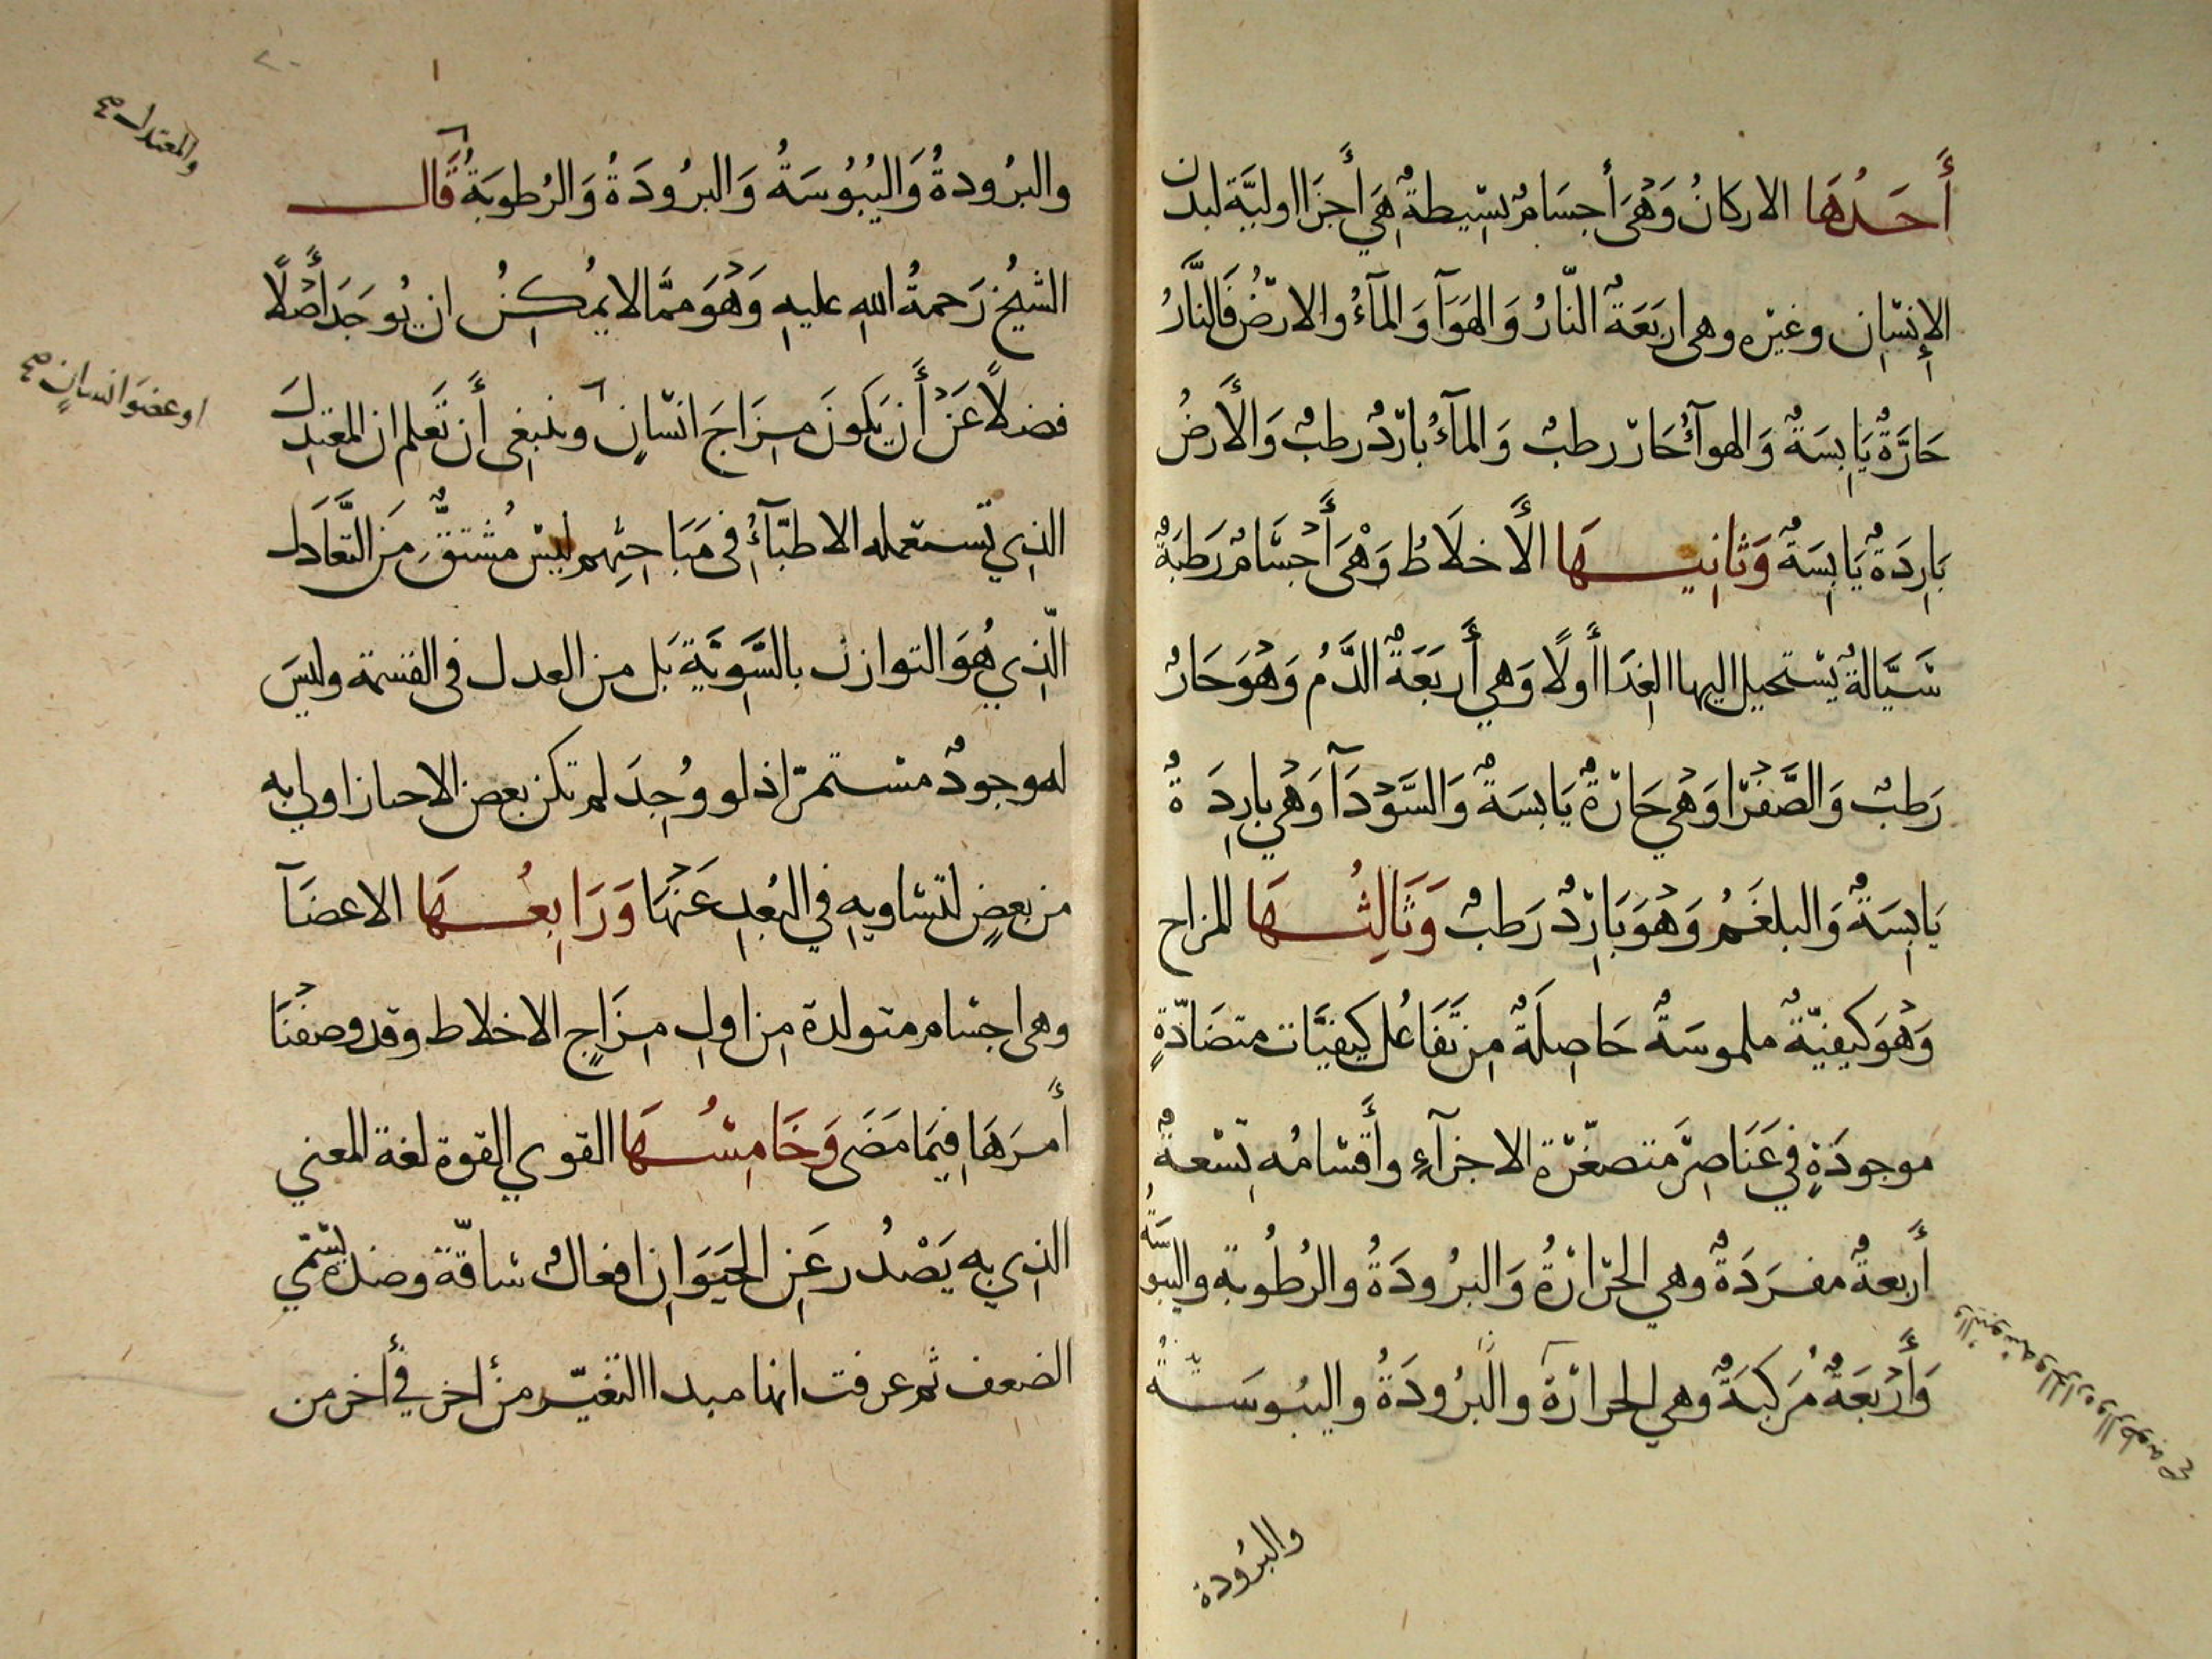 أَحَدُهَا الاركانُ وَهْىَ أجسَامٌ بسِيطةٌ هِيَ أَجزَا اوليَّة لبدن
الإِنسَانِ وغيره وهى اربَعَةٌ النّارُ وَالهَوَآ وَالمآءُ والارضُ فَالنَّارُ
حَارَّةٌ يَابِسَةٌ وَالهوآءُ حَارّ رطبٌ وَالمآءُ بارِدٌ رطبٌ وَالأَرضُ
بَارِدَةٌ يَابِسَةٌ وَثَانِيهَا الأَخلَاطُ وَهْىَ أَجْسَامٌ رَطبَةٌ
سَيَّالةٌ يستحيل اليها الغِذَا أَولًا وَهِي أَربَعَةٌ الدَّمُ وَهْوَ حَارٌ
رَطبٌ وَالصَّفْرَا وَهْيَ حَارَّةٌ يَابسَةٌ وَالسَّوْدَآ وَهْي بارِدَةٌ
يَابِسَةٌ وَالبلغَمُ وَهْوَ بَارِدٌ رَطبٌ وَثَالِثُهَا المزاج
وَهْوَ كيفيّةٌ ملموسَةٌ حَاصِلَةٌ مِن تَفَاعُل كيفيَّات متضَادّةٍ
موجودَةٍ فِي عَنَاصِرَ متصغّرة الاجزآءِ وأَقسَامُه تِسْعةٌ
أَربعةٌ مفرَدَةٌ وهي الحرَارَةُ وَالبرُودَةُ والرُطُوبة واليبوسَةُ
وَأَرْبَعَةٌ مُرَكبَةٌ وهي الحرارَة والبُرُودَةُ واليبُوسَةُ
واليبوسة والحرارة والرطوبة صح
والبرُودة
والبرُودةُ وَاليُبُوسَةُ وَالبرُودَةُ وَالرُطوبَةُ قَال
الشيخُ رَحمةُ اللهِ عليهِ وَهْوَ ممَّا لا يُمكِنُ ان يُوجَدَ أَصْلًا
فضلًا عَنْ أَن يَكونَ مِزَاجَ انسَانٍ وينبغِى أَن تَعلم ان المعتدِلَ
الذِي تَستعمله الاطبَّآءُ فى مَبَاحثِهم ليسَ مُشتقٌّ مِنَ التَّعَادُل
الّذِي هُوَ التوازن بالسَّوِيَّةِ بَل من العدل فى القسمة وليسَ
له موجودٌ مستمرّ اذ لو وُجِدَ لم تكن بعض الاحياز اولى به
من بعضٍ لتساويهِ فِي البُعدِ عَنْهَا وَرَابِعُهَا الاعضَآ
وهى اجسام متولدة مِن اولِ مِزَاجِ الاخلاط وقد وصفْنَا
أَمرَهَا فيمَا مَضَى وَخَامِسُهَا القوي القوة لغة المعني
الذِي به يَصْدُر عَنِ الحَيَوَانِ افعالٌ شاقّة وضده يسمّي
الضعف ثم عرفت انها مبدا التغيّر من أخر في أخر من
والمعتدل صح
او عضوَ انسانٍ صح
٢٠